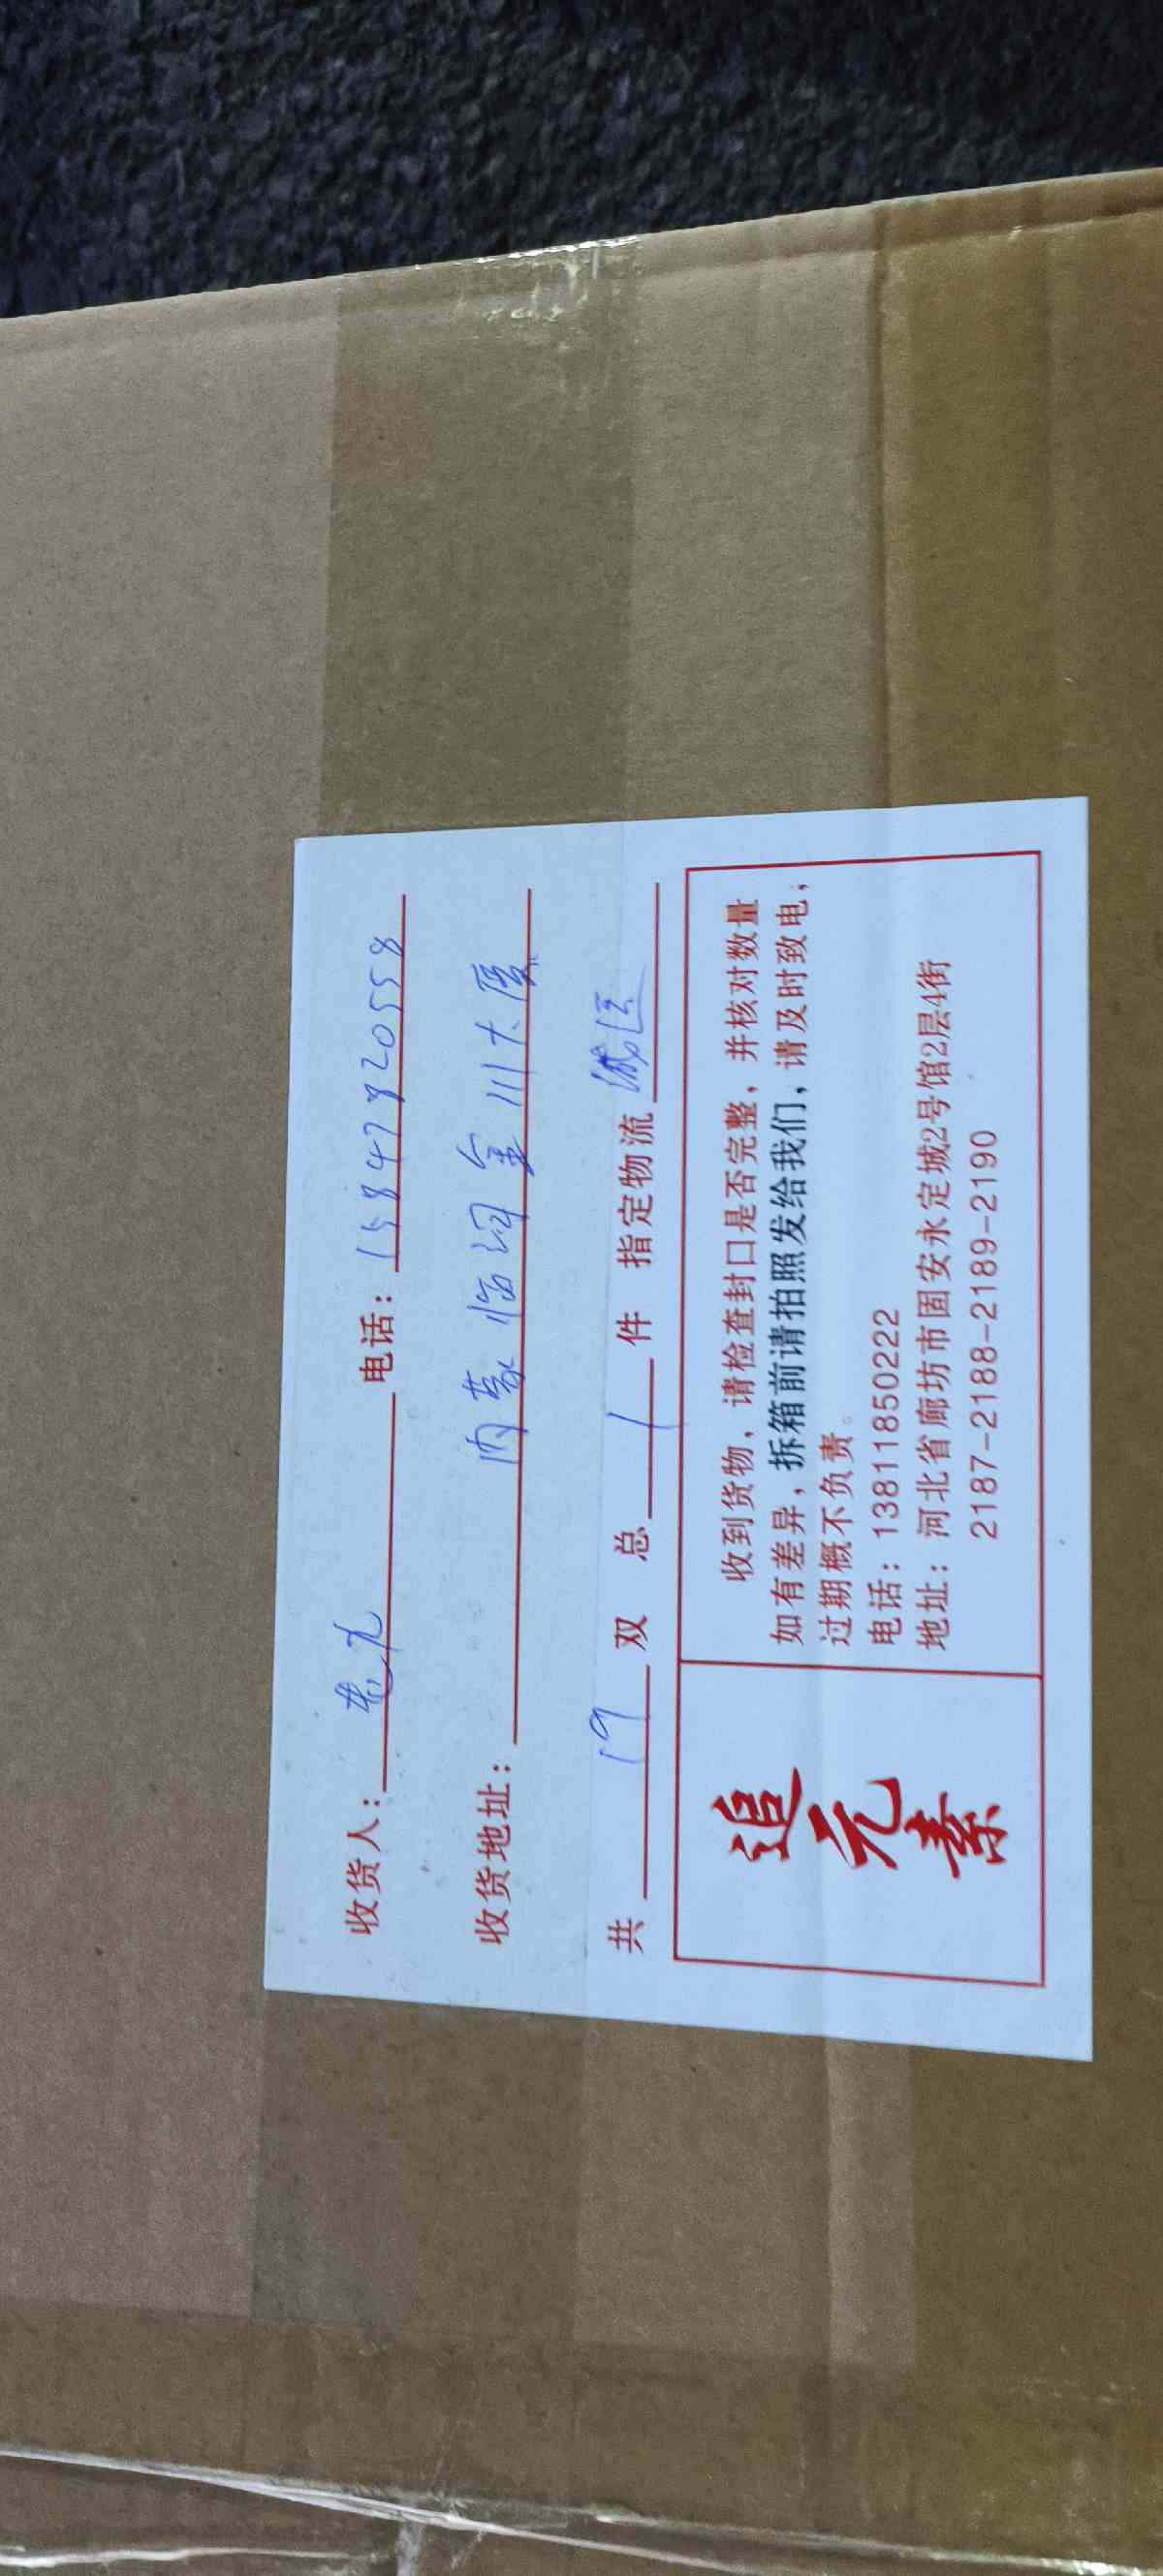 收货人： 电话：15847820558
收货地址： 内蒙临河金川大厦
共 19 双 总 1 件 指定物流
收到货物，请检查封口是否完整，并核对数量
如有差异，拆箱前请拍照发给我们，请及时致电，
过期概不负责。
电话：13811850222
地址：河北省廊坊市固安永定城2号馆2层4街
2187-2188-2189-2190
追元素